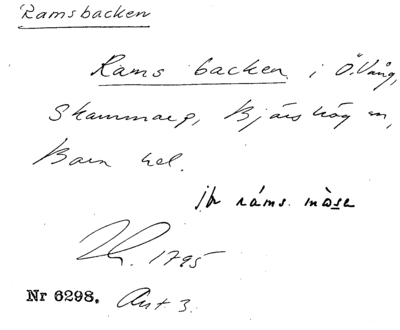 Ramsbacken
Rams backen i Ö. Vång,
Skammarp, Bjärshög sn,
Bara hd.
jfr råms. måse
Lh. 1795
Nr 6298. Ant. 3.